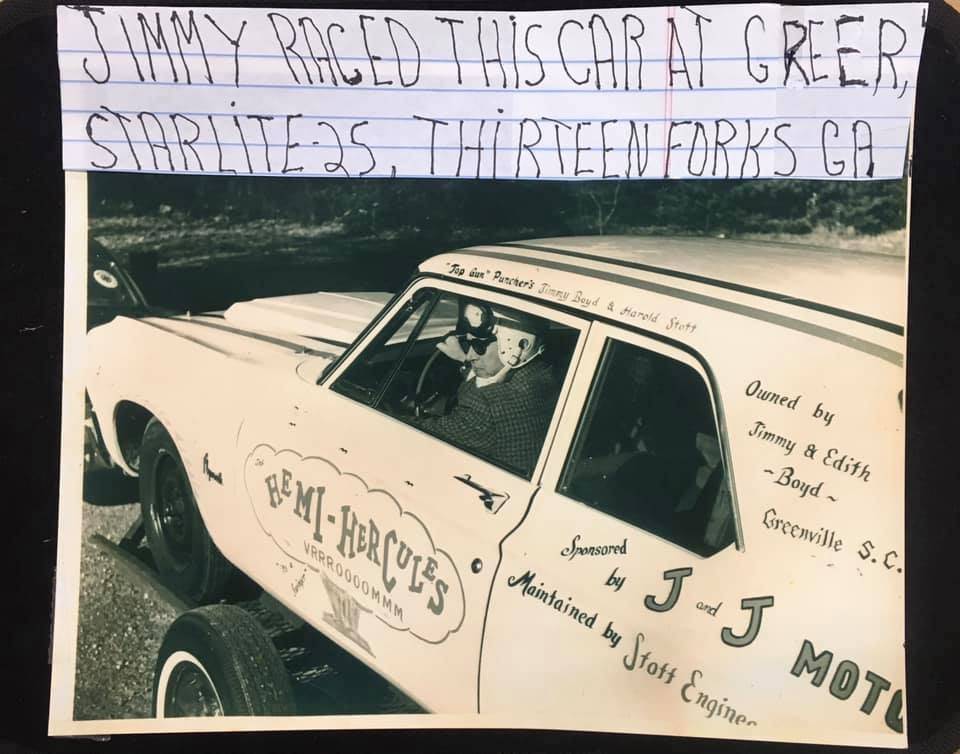 JIMMY RACED THIS CAR AT GREER,
STARLITE-25, THIRTEEN FORKS GA
"Top Gun" Puncher's Jimmy Boyd & Harold Stott
Owned by
Jimmy & Edith
-Boyd~
Greenville S.C.
Plymouth
HEMI-HERCULES
VRRROOOOMMM
Sponsored
by J and J MOTO
Maintained by Stott Engine